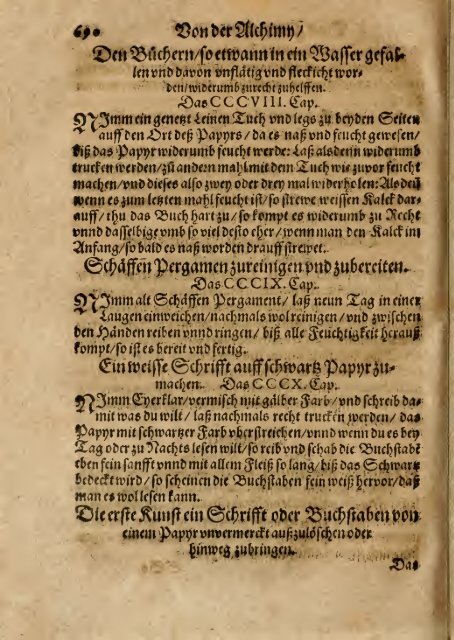 690 Von der Alchimy/
Den Büchern/so etwann in ein Wasser gefal-
len vnd davon vnflätig vnd fleckicht wor-
den/widerumb zurecht zuhelffen.
Das CCCVIII. Cap.
NImm ein genetzt Leinen Tuch vnd legs zu beyden Seiten
auff den Ort deß Papyrs/da es naß vnd feucht gewesen/
biß das Papyr widerumb feucht werde: Laß als denn widerumb
trucken werden/zū andern mahl mit dem Tuch wie zuvor feucht
machen/vnd dieses also zwey oder drey mal widerholen: Als deñ
wenn es zum letzten mahl feucht ist/so strewe weissen Kalck dar-
auff/thu das Buch hart zu/so kompt es widerumb zu Recht
vnnd dasselbige vmb so viel desto eher/wenn man den Kalck im
Anfang/so bald es naß worden drauff strewet.
Schäffen Pergamen zureinigen vnd zubereiten.
Das CCCIX. Cap.
NImm alt Schäffen Pergament/laß neun Tag in einer
Laugen einweichen/nachmals wol reinigen/vnd zwischen
den Händen reiben vnnd ringen/biß alle Feuchtigkeit herauß
kompt/so ist es bereit vnd fertig.
Ein weisse Schrifft auff schwartz Papyr zu-
machen. Das CCCX. Cap.
NImm Eyerklar/vermisch mit gälber Farb/vnd schreib da-
mit was du wilt/laß nachmals recht trucken werden/das
Papyr mit schwartzer Farb vberstreichen/vnnd wenn du es bey
Tag oder zu Nachts lesen wilt/so reib vnd schab die Buchstabē
eben fein sanfft vnnd mit allem Fleiß so lang/biß das Schwartz
bedeckt wird/so scheinen die Buchstaben fein weiß hervor/daß
man es wol lesen kann.
Die erste Kunst ein Schrifft oder Buchstaben von
einem Papyr vnvermerckt außzulöschen oder
hinweg zubringen.
Das